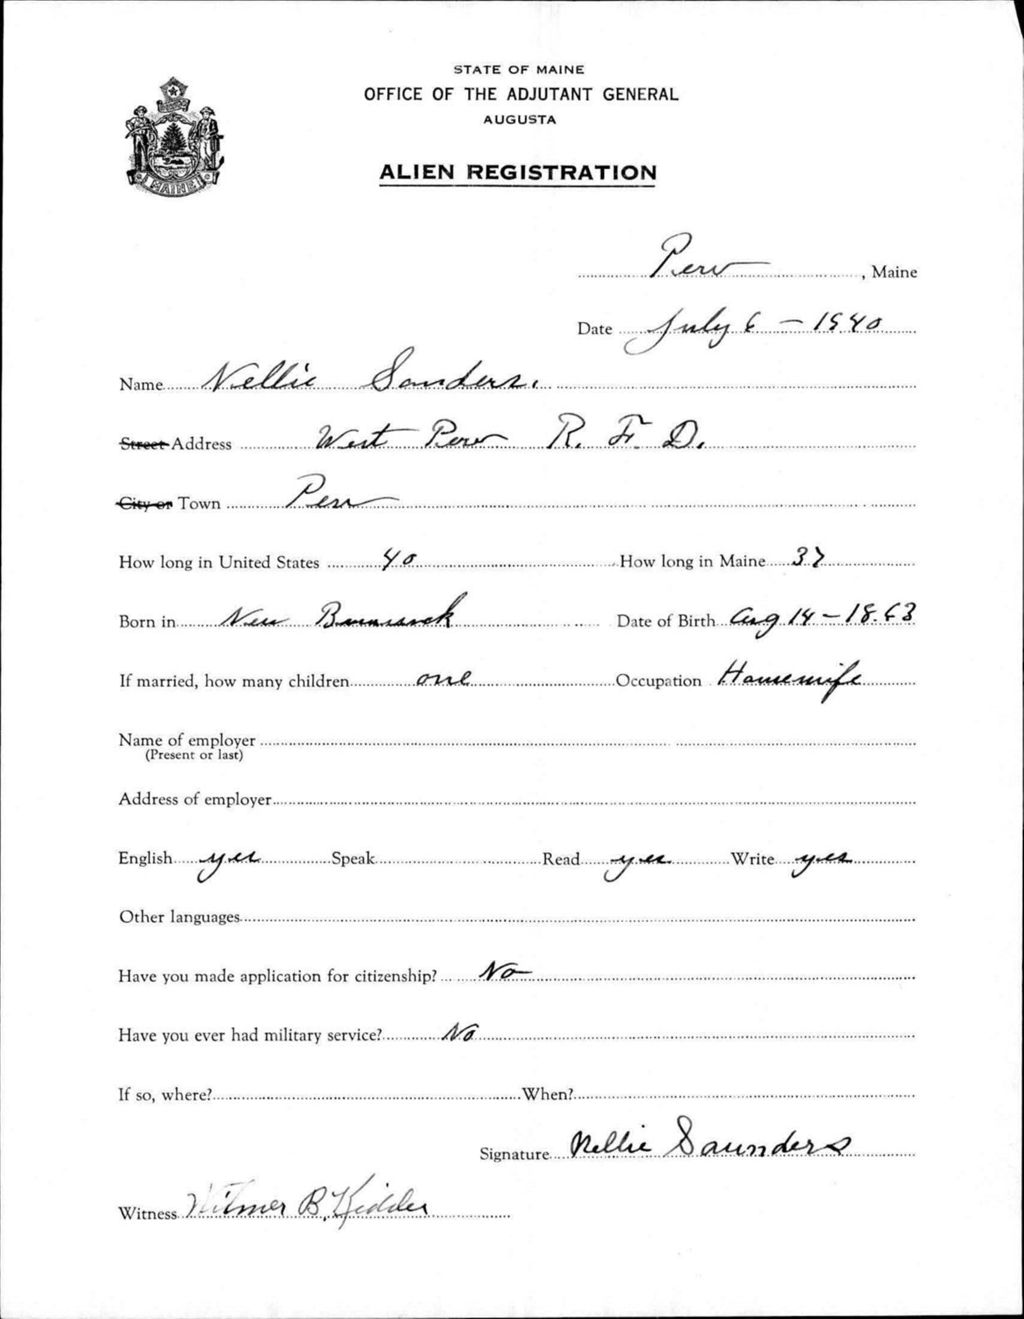 STATE OF MAINE
OFFICE OF THE ADJUTANT GENERAL
AUGUSTA
ALIEN REGISTRATION
MAINE
Peru, Maine
Date July 6 - 1940
Name Nellie Sanders.
Street Address West Peru R. F. D.
City or Town Peru
How long in United States 40 How long in Maine 37
Born in New Brunswick Date of Birth Aug 14 - 1863
If married, how many children one Occupation Housewife
Name of employer
(Present or last)
Address of employer
English yes Speak Read yes Write yes
Other languages
Have you made application for citizenship? No
Have you ever had military service? No
If so, where? When?
Signature Nellie Saunders
Witness Wilmer B. Kidder